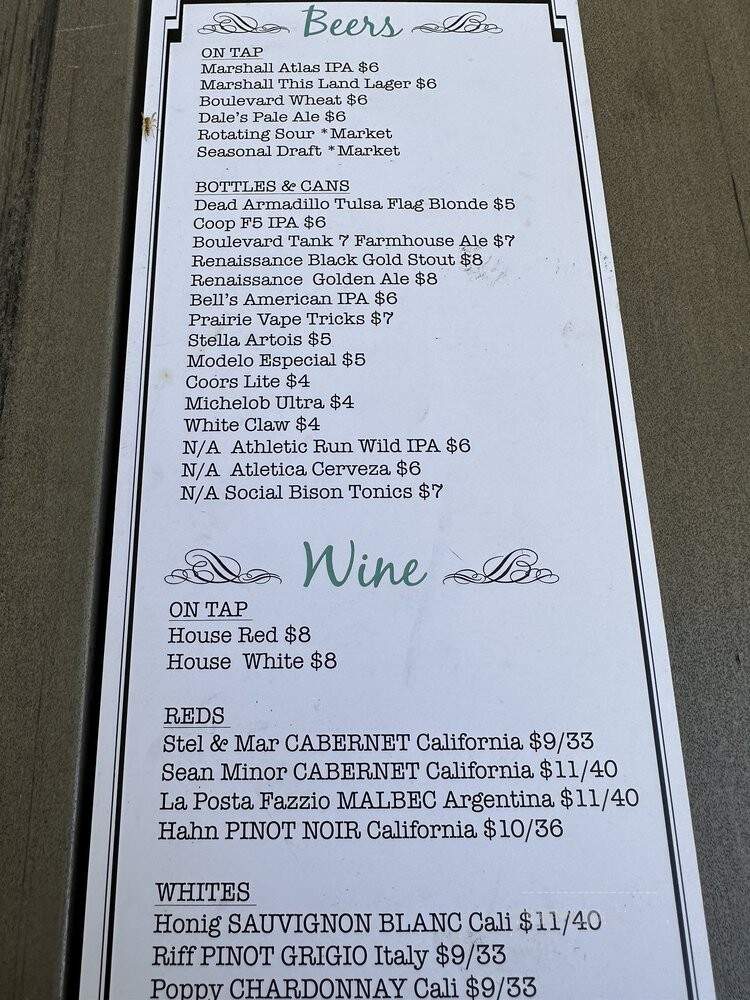 Beers
ON TAP
Marshall Atlas IPA $6
Marshall This Land Lager $6
Boulevard Wheat $6
Dale's Pale Ale $6
Rotating Sour *Market
Seasonal Draft *Market
BOTTLES & CANS
Dead Armadillo Tulsa Flag Blonde $5
Coop F5 IPA $6
Boulevard Tank 7 Farmhouse Ale $7
Renaissance Black Gold Stout $8
Renaissance Golden Ale $8
Bell's American IPA $6
Prairie Vape Tricks $7
Stella Artois $5
Modelo Especial $5
Coors Lite $4
Michelob Ultra $4
White Claw $4
N/A Athletic Run Wild IPA $6
N/A Atletica Cerveza $6
N/A Social Bison Tonics $7
Wine
ON TAP
House Red $8
House White $8
REDS
Stel & Mar CABERNET California $9/33
Sean Minor CABERNET California $11/40
La Posta Fazzio MALBEC Argentina $11/40
Hahn PINOT NOIR California $10/36
WHITES
Honig SAUVIGNON BLANC Cali $11/40
Riff PINOT GRIGIO Italy $9/33
Poppy CHARDONNAY Cali $9/33